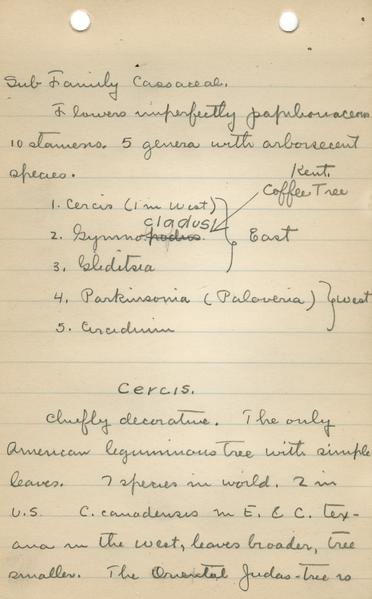 Sub Family Cassaceae.
Flowers imperfectly papilionaceous
10 stamens. 5 genera with arborescent
species.
Kent.
Coffee Tree
1. Cercis (1 in West)
cladus
2. Gymnopodus. East
3. Gleditsia
4. Parkinsonia (Paloveria) West
5. Cercidium
Cercis.
Chiefly decorative. The only
American leguminous tree with simple
leaves. 7 species in world. 2 in
U.S. C. canadensis in E. & C. tex-
ana in the west, leaves broader, tree
smaller. The Oriental Judas-tree is